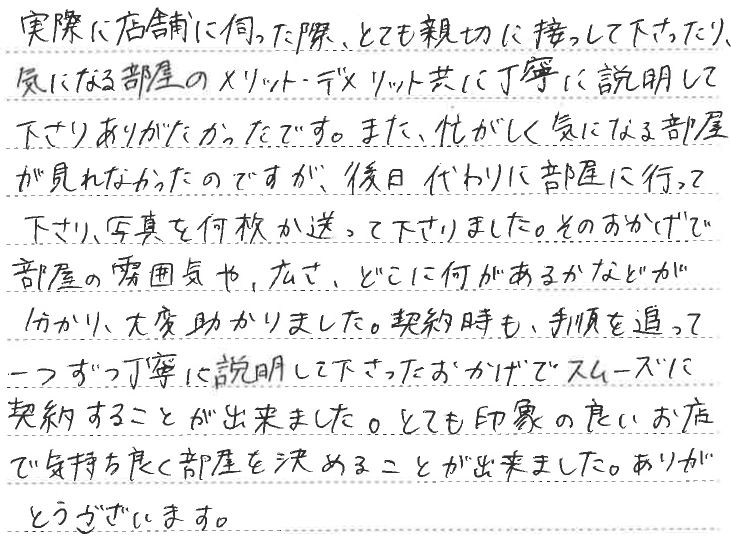 実際に店舗に伺った際、とても親切に接っして下さったり、
気になる部屋のメリット・デメリット共に丁寧に説明して
下さりありがたかったです。また、忙がしく気になる部屋
が見れなかったのですが、後日代わりに部屋に行って
下さり、写真を何枚か送って下さりました。そのおかげで
部屋の雰囲気や、広さ、どこに何があるかなどが
分かり、大変助かりました。契約時も、手順を追って
一つずつ丁寧に説明して下さったおかげでスムーズに
契約することが出来ました。とても印象の良いお店
で気持ち良く部屋を決めることが出来ました。ありが
とうございます。